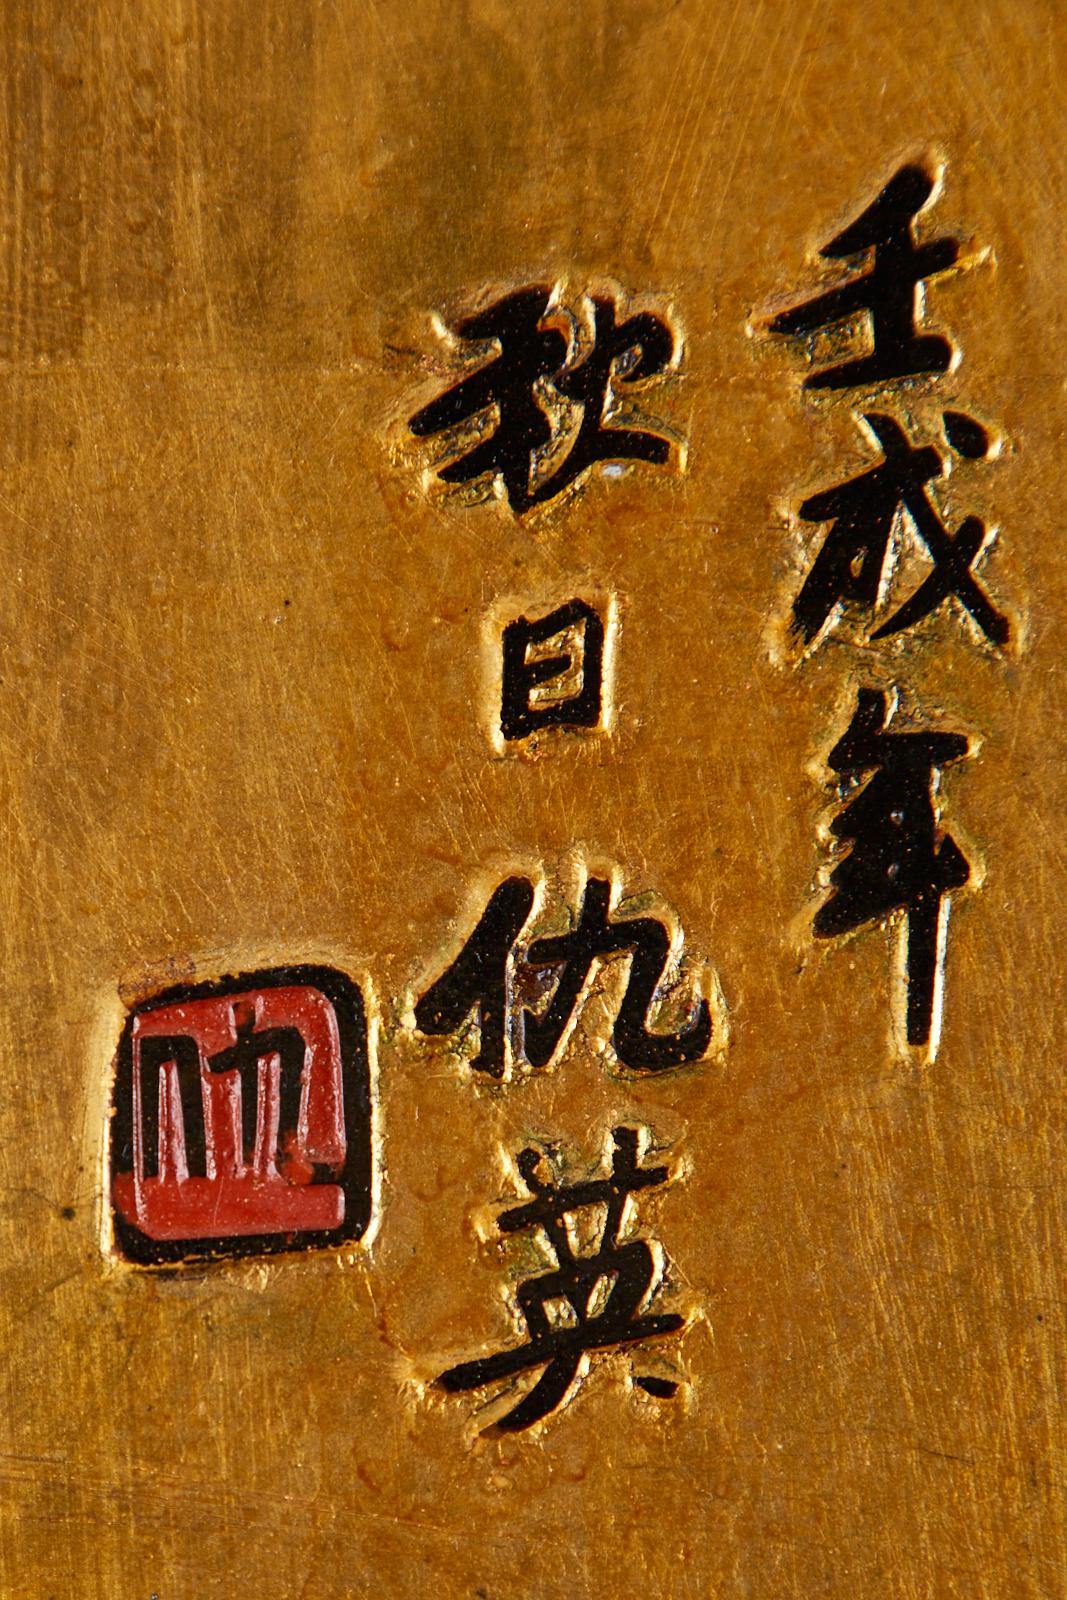 壬戌年
秋日仇英